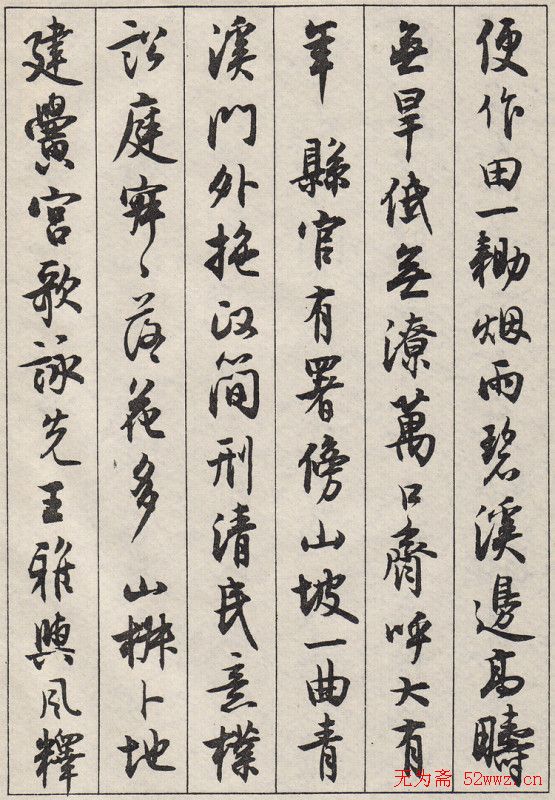 便作田一耡烟雨碧溪邊高疇
無旱低無潦萬口齊呼大有
年 縣官有署傍山坡一曲青
溪門外拖政簡刑清民意樸
訟庭寂〻落花多 山椒卜地
建黌宮歌詠先王雅與風釋
无为斋 52wwz.cn